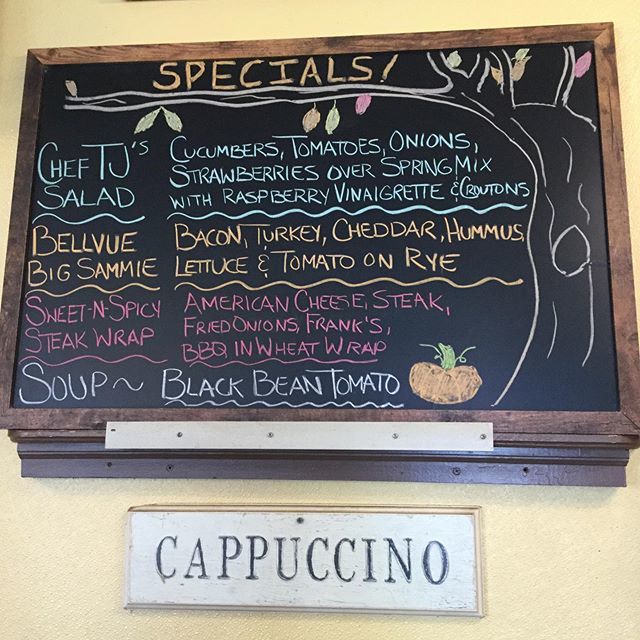 SPECIALS!
CHEF TJ'S
SALAD
CUCUMBERS, TOMATOES, ONIONS,
STRAWBERRIES OVER SPRING MIX
WITH RASPBERRY VINAIGRETTE & CROUTONS
BELLVUE
BIG SAMMIE
BACON, TURKEY, CHEDDAR, HUMMUS,
LETTUCE & TOMATO ON RYE
SWEET-N-SPICY
STEAK WRAP
AMERICAN CHEESE, STEAK,
FRIED ONIONS, FRANK'S,
BBQ, IN WHEAT WRAP
SOUP~ BLACK BEAN TOMATO
CAPPUCCINO